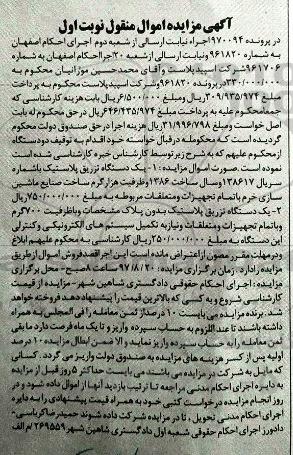 آگهی مزایده اموال منقول نوبت اول
در پرونده ۹۷۰۰۹۴ اجراء نیابت ارسالی از شعبه دوم اجرای احکام اصفهان
به شماره ۹۶۱۸۲۰ ونیابت ارسالی از شعبه ۲۰ اجرااحکام اصفهان به شماره
۹۶۱۷۰۶ شرکت اسپیدپلاست وآقای محمدحسین موژانیان محکوم به
۳۳۰/۰۰۰/۰۰۰ در پرونده ۹۶۱۸۲۰ شرکت اسپیدپلاست محکوم به پرداخت
مبلغ ۳۰۹/۹۳۵/۹۷۴ ریال ومبلغ ۶/۵۰۰/۰۰۰ ریال بابت هزینه کارشناسی که
جمعامحکوم علیه به پرداخت مبلغ ۶۴۶/۴۳۵/۹۷۴ ریال در حق محکوم له بابت
اصل خواست ومبلغ ۳۱/۹۹۶/۷۹۸ ریال هزینه اجرا درحق صندوق دولت محکوم
گردیده است که محکوم‌له درقبال خواسته خود اقدام به توقیف دودستگاه
ازمحکوم علیهم که به شرح زیر توسط کارشناس خبره کارشناسی شده است
نموده است .صورت اموال مزایده :۱- یک دستگاه تزریق پلاستیک باشماره
سریال ۱۳۸۶۱۷ وسال ساخت ۱۳۸۶ وظرفیت هزارگرم ساخت صنایع ماشین
سازی خرم باتمام تجهیزات ومتعلقات مربوطه به مبلغ ۷۵۰/۰۰۰/۰۰۰ ریال
۲- یک دستگاه تزریق پلاستیک بدون پلاک مشخصات وباظرفیت ۷۰۰ گرم
وباتمام تجهیزات ومتعلقات ونیاز به تکمیل سیستم های الکترونیکی وکنترلی
این دستگاه به مبلغ ۲۵۰/۰۰۰/۰۰۰ ریال کارشناسی به محکوم علیهم ابلاغ
ودرمهلت مقرر مصون از اعتراض مانده است این اجراقصدفروش اموال از طریق
مزایده رادارد. زمان برگزاری مزایده : ۹۷/۸/۲۰ ساعت ۸صبح- محل برگزاری
مزایده: اجرای احکام حقوقی دادگستری شاهین شهر- مزایده از قیمت
کارشناسی شروع وبه کسی که بالاترین قیمت را پیشنهاددهد فروخته خواهد
شد. برنده مزایده می بایست ۱۰ درصداز ثمن معامله را فی المجلس به همراه
داشته باشند تا عنداللزوم به حساب سپرده واریز و تا یک ماه فرصت دارد مابقی
ثمن معامله رابه حساب سپرده واریز نماید و الا ضمن ابطال مزایده ۱۰ درصد
اولیه پس از کسر هزینه های مزایده به صندوق دولت واریز می گردد . کسانی
که مایل به شرکت در مزایده می باشند می بایست حداکثر ۵روز قبل از مزایده
به دایره اجرای احکام مدنی مراجعه تا ترتیب بازدید آنها از اموال داده شود و در
روز انجام مزایده درخواست کتبی خود به همراه قیمت پیشنهادی رابه دایره
اجرای احکام مدنی تحویل , تا در مزایده شرکت داده شوند حمیدرضاکرباسی-
دادورز اجرای احکام حقوقی شعبه اول دادگستری شاهین شهر ۲۶۹۵۵۹/م الف